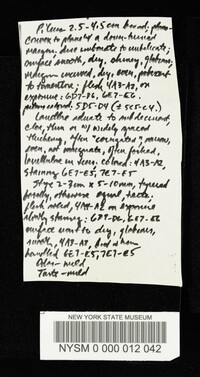 Pileus 2.5-4.5 cm broad, plano-
convex to plane w/ a down-turned
margin, disc umbonate to umbilicate;
surface smooth, dry, shiny, glabrous,
margin incurved, dry, even, pubescent
to tomentose; flesh 4A3-A2, on
exposure 6D7-D6, 6E7-E6.
5D5-D4 (± 5C5-C4)
Lamellae adnate to subdecurrent,
close, thin or w/ widely spaced
thickened, often "corrugated", narrow,
even, not marginate, often forked,
lamellulae in series. colored: 4A3-A2,
staining 6E7-E5, 7E7-E5
Stipe 2-3 cm x 5-10 mm, tapered
basally, otherwise equal, terete.
flesh solid, 4A4-A2 on exposure
slowly staining: 6D7-D6, 6E7-E6
surface moist to dry, glabrous,
smooth, 4A3-A2, but when
handled 6E7-E5, 7E7-E5
Odor - mild
Taste - mild
NEW YORK STATE MUSEUM
NYSM 0 000 012 042